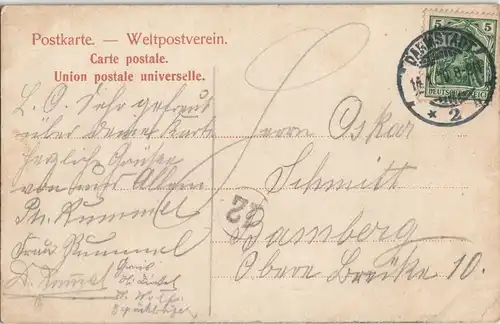 Postkarte. — Weltpostverein.
Carte postale.
Union postale universelle.
5 5
DEUTSCHES REICH
DARMSTADT
* * 2
L. O. Sehr gefreut
über Deine Karte
herzliche Grüsse
von uns Allen
Ph. Rummel
Frau Rummel
Herrn Oskar
Schmitt
Bamberg
Obere Brücke 10.
22